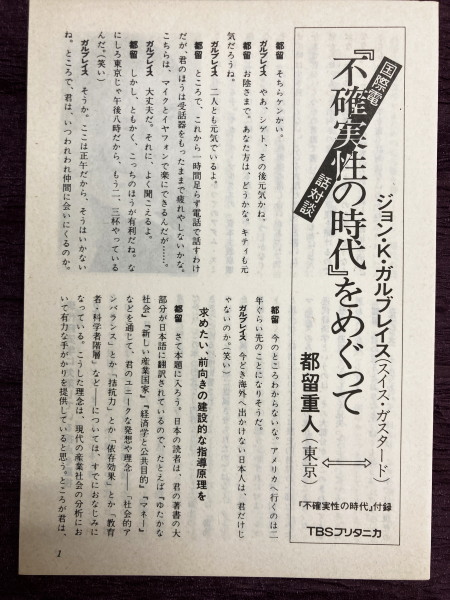 国際電話対談
『不確実性の時代』をめぐって
ジョン・K・ガルブレイス(スイス・ガスタード)
都留重人(東京)
『不確実性の時代』付録
TBSブリタニカ
都留 そちらケンかい。
ガルブレイス やあ、シゲト、その後元気かね。
都留 お陰さまで。あなた方は、どうかな。キティも元
気だろうね。
ガルブレイス 二人とも元気でいるよ。
都留 ところで、これから一時間足らず電話で話すわけ
だが、君のほうは受話器をもったままで疲れやしないかな。
こちらは、マイクとイヤフォンで楽にできるんだが……。
ガルブレイス 大丈夫だ。それに、よく聞こえるよ。
都留 しかし、ともかく、こっちのほうが有利だね。な
にしろ東京じゃ午後八時だから、もう二、三杯やっている
んだ。(笑い)
ガルブレイス そうか。ここは正午だから、そうはいかない
ね。ところで、君は、いつわれわれ仲間に会いにくるのか。
都留 今のところわからないな。アメリカへ行くのは二
年ぐらい先のことになりそうだ。
ガルブレイス 今どき海外へ出かけない日本人は、君だけじ
ゃないのか。(笑い)
求めたい、前向きの建設的な指導原理を
都留 さて本題に入ろう。日本の読者は、君の著書の大
部分が日本語に翻訳されているので、たとえば『ゆたかな
社会』『新しい産業国家』『経済学と公共目的』『マネー』
などを通じて、君のユニークな発想や理念――「社会的ア
ンバランス」とか「拮抗力」とか「依存効果」とか「教育
者・科学者階層」など――については、すでにおなじみに
なっている。こうした理念は、現代の産業社会の分析にお
いて有力な手がかりを提供していると思う。ところが君は、
1